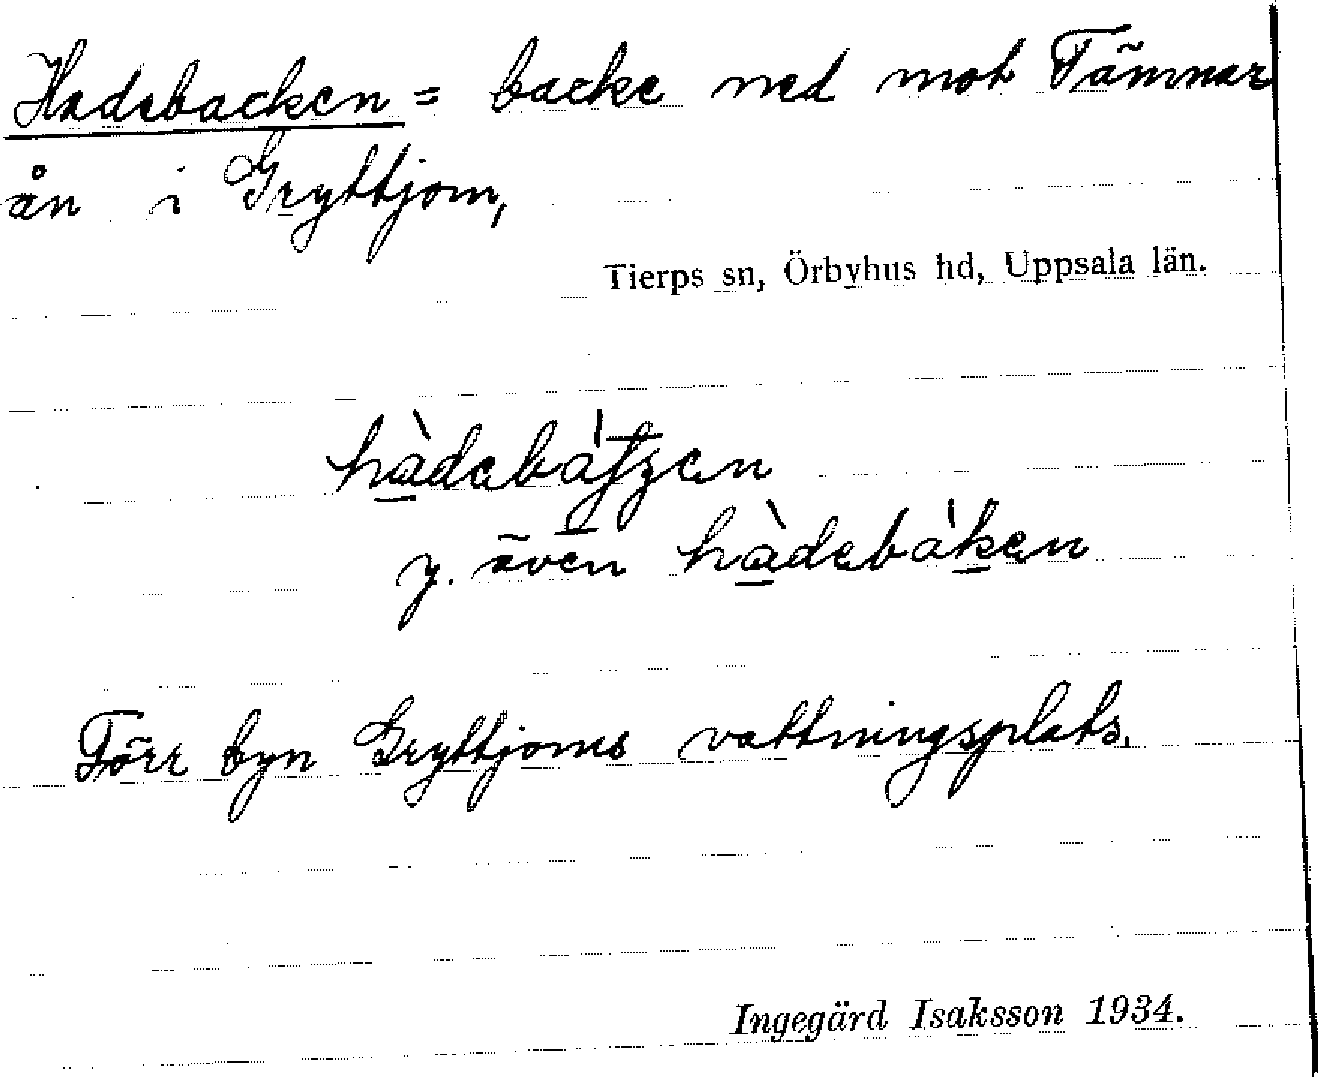 Hadebacken = backe ned mot Tämnar
ån i Gryttjom,
Tierps sn, Örbyhus hd, Uppsala län.
y. även hàdebàken
Förr byn Gryttjoms vattningsplats.
Ingegärd Isaksson 1934.